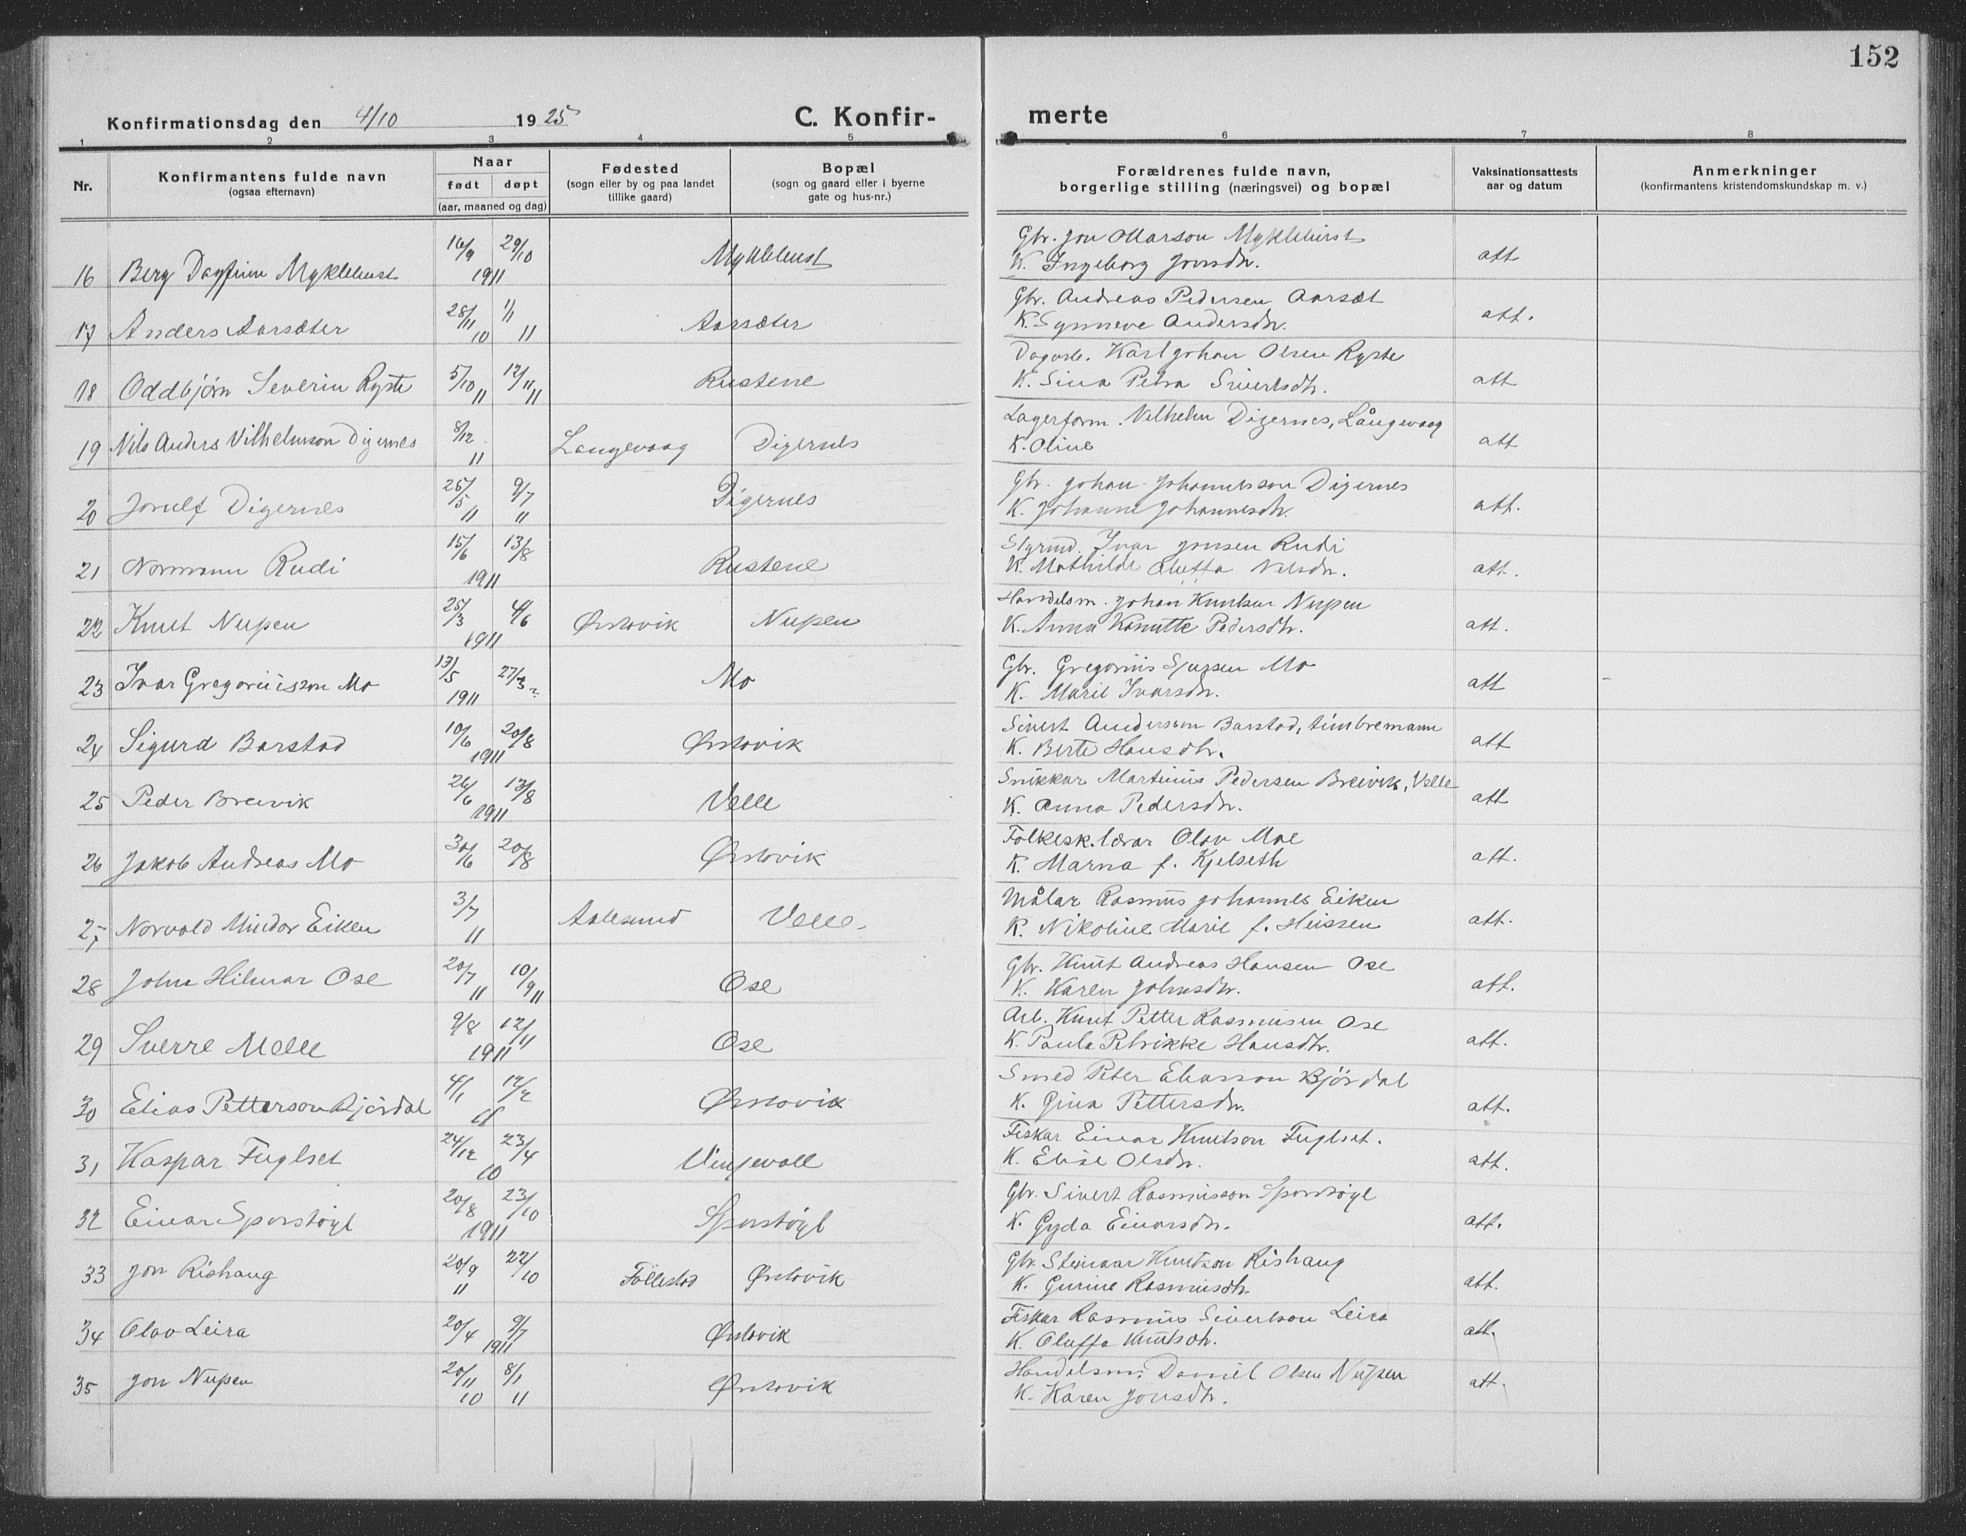 152
Konfirmationsdag den 4/10 1925 C. Konfir- merte
1 2 3 4 5 6 7 8
Nr. Konfirmantens fulde navn (ogsaa efternavn) Naar født døpt (aar, maaned og dag) Fødested (sogn eller by og paa landet tillike gaard) Bopæl (sogn og gaard eller i byerne gate og hus-nr.) Forældrenes fulde navn, borgerlige stilling (næringsvei) og bopæl Vaksinationsattests aar og datum Anmerkninger (konfirmantens kristendomskundskap m. v.)
16 Berg Dagfinn Myklebust 16/9 29/10 1911 Myklebust Gbr. Jon Olarson Myklebust att
K. Ingeborg Jonsdtr.
17 Anders Aarsæter 28/11 10 1/1 11 Aarsæter Gbr. Andreas Pedersen Aarsæt att.
K. Synneve Andersdtr.
18 Oddbjørn Severin Ryste 5/10 11 12/11 11 Rustene Dagarb. Karl Johan Olsen Ryste att
K. Sina Petra Sivertsdtr.
19 Nils Anders Vilhelmson Digernes 8/12 11 Langevaag Digernes Lagerform. Vilhelm Digernes, Långevaag att
K. Oline
20 Jonulf Digernes 25/5 11 9/7 11 Digernes Gbr. Johan Johannesson Digernes att.
K. Johanne Johannesdtr.
21 Normann Rudi 15/6 13/8 1911 Rustene Styrmd. Ivar Jonsen Rudi att.
K. Mathilde Oluffa Nilsdtr.
22 Knut Nupen 25/3 4/6 1911 Ørstavik Nupen Handelsm. Johan Knutsen Nupen att.
K. Anna Knutte Pedersdtr.
23 Ivar Gregoriusson Mo 13/5 27/3 1911 Mo Gbr. Gregorius Sjursen Mo att
K. Marie Ivarsdtr.
24 Sigurd Barstad 10/6 20/8 1911 Ørstavik Sivert Anderson Barstad, timbremann att
K. Berte Hansdtr.
25 Peder Breivik 26/6 13/8 1911 Velle Snikkar Martinus Pedersen Breivik, Velle att
K. Anna Pedersdtr.
26 Jakob Andreas Mo 30/6 20/8 Ørstavik Folkesk.lærar Olav Moe att.
K. Marna f. Kjelseth
27 Norvald Mindor Eiken 3/7 11 Aalesund Velle Målar Rasmus Johannes Eiken att.
K. Nikoline Marie f. Hussen
28 John Hilmar Ose 20/7 11 10/9 11 Ose Gbr. Knut Andreas Hansen Ose att.
K. Karen Johnsdtr.
29 Sverre Melle 9/8 12/11 1911 Ose Arb. Knut Petter Rasmusen Ose att.
K. Paula Petrikke Hansdtr.
30 Elias Petterson Bjørdal 4/1 12/2 11 Ørstavik Smed Peter Eliasson Bjørdal att.
K. Gina Pettersdtr.
31 Kaspar Fuglset 24/12 23/4 10 Vinjevoll Fiskar Einar Knutson Fuglset. att.
K. Elise Olsdtr.
32 Einar Sporstøyl 20/8 23/10 1911 Sporstøyl Gbr. Sivert Rasmusson Sporstøyl att.
K. Gyda Einarsdtr.
33 Jon Rishaug 20/9 11 22/10 Follestad Ørstavik Gbr. Steinar Knutson Rishaug att.
K. Gurine Rasmusdtr.
34 Olav Leira 20/4 9/7 1911 Ørstavik Fiskar Rasmus Sivertson Leira att.
K. Oluffa Knutsdtr.
35 Jon Nupen 20/11 10 8/1 11 Ørstavik Handelsm. Daniel Olsen Nupen att.
K. Karen Jonsdtr.